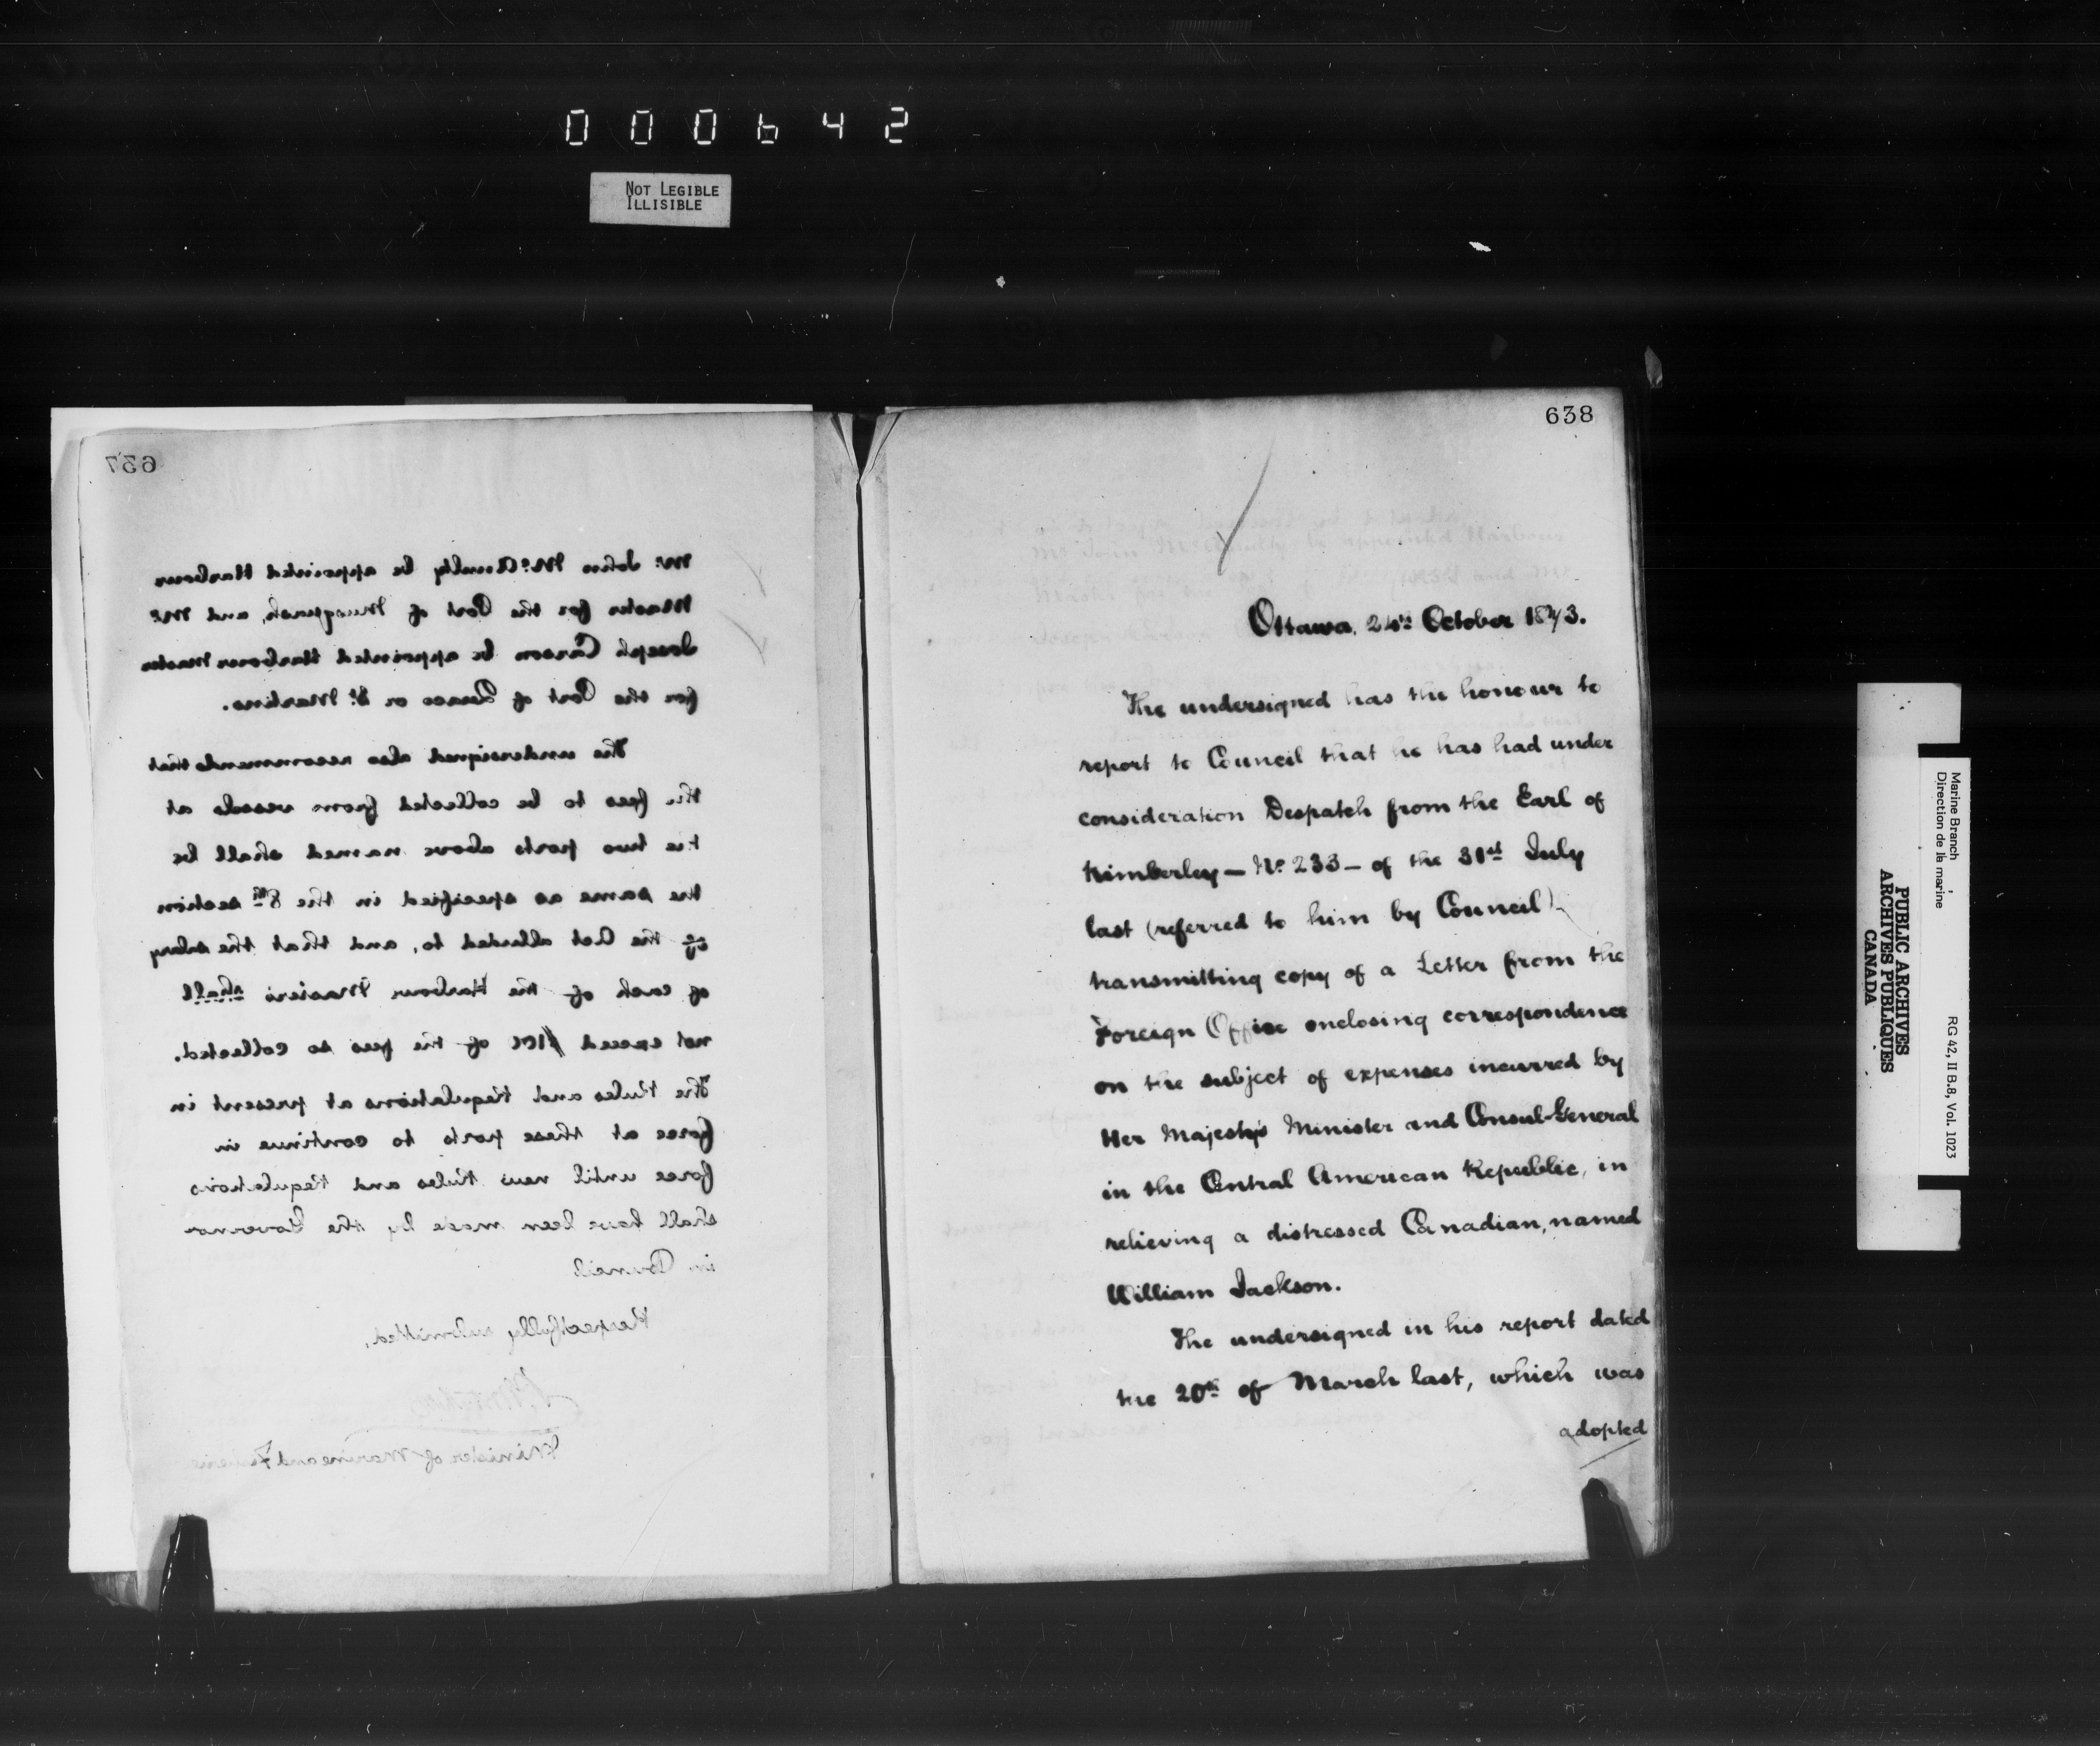 000642
NOT LEGIBLE
ILLISIBLE
637
Mr. John McAnulty be appointed Harbour
Master for the Port of Musquash, and Mr.
Joseph Carson be appointed Harbour Master
for the Port of Quaco or St. Martins.
The undersigned also recommends that
the fees to be collected from vessels at
the two ports above named shall be
the same as specified in the 8th section
of the Act alluded to, and that the salary
of each of the Harbour Masters shall
not exceed of the fees so collected.
The Rules and Regulations at present in
force at these ports to continue in
force until new Rules and Regulations
shall have been made by the Governor
in Council.
Respectfully submitted,
Minister of Marine and Fisheries
638
Ottawa, 24th October 1873.
The undersigned has the honour to
report to Council that he has had under
consideration Despatch from the Earl of
Kimberley — No. 233 — of the 31st July
last (referred to him by Council)
transmitting copy of a Letter from the
Foreign Office enclosing correspondence
on the subject of expenses incurred by
Her Majesty's Minister and Consul-General
in the Central American Republic, in
relieving a distressed Canadian, named
William Jackson.
The undersigned in his report dated
the 20th of March last, which was
adopted
Marine Branch
Direction de la marine
RG 42, II B.8, Vol. 1023
PUBLIC ARCHIVES
ARCHIVES PUBLIQUES
CANADA